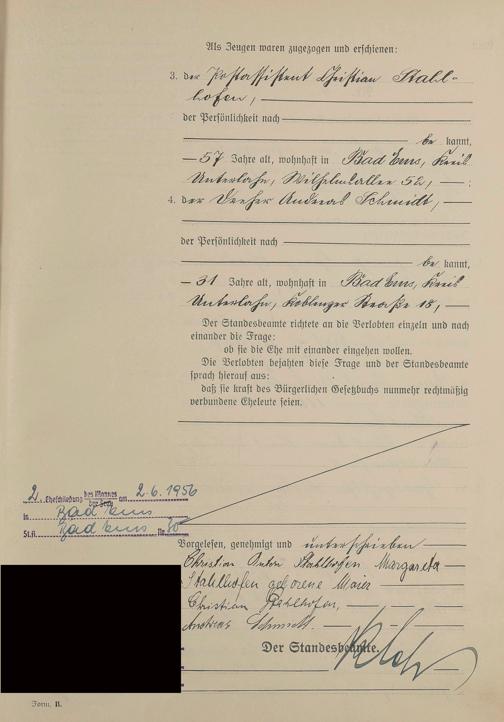 Als Zeugen waren zugezogen und erschienen:
3. der Postassistent Christian Stahl-
hofen,
der Persönlichkeit nach
be kannt,
57 Jahre alt, wohnhaft in Bad Ems, Kreis
Unterlahn, Wilhelmsallee 52, ;
4. der Dreher Andreas Schmidt,
der Persönlichkeit nach
be kannt,
31 Jahre alt, wohnhaft in Bad Ems, Kreis
Unterlahn, Koblenzer Straße 18,
Der Standesbeamte richtete an die Verlobten einzeln und nach
einander die Frage:
ob sie die Ehe mit einander eingehen wollen.
Die Verlobten bejahten diese Frage und der Standesbeamte
sprach hierauf aus:
daß sie kraft des Bürgerlichen Gesetzbuchs nunmehr rechtmäßig
verbundene Eheleute seien.
2. Eheschließung des Mannes am 2.6.1956
der Frau
in Bad Ems
St.A. Bad Ems Nr.
Vorgelesen, genehmigt und unterschrieben
Christian Anton Stahlhofen Margareta
Stahlhofen geborene Maier
Christian Stahlhofen,
Andreas Schmidt.
Der Standesbeamte.
Form. B.